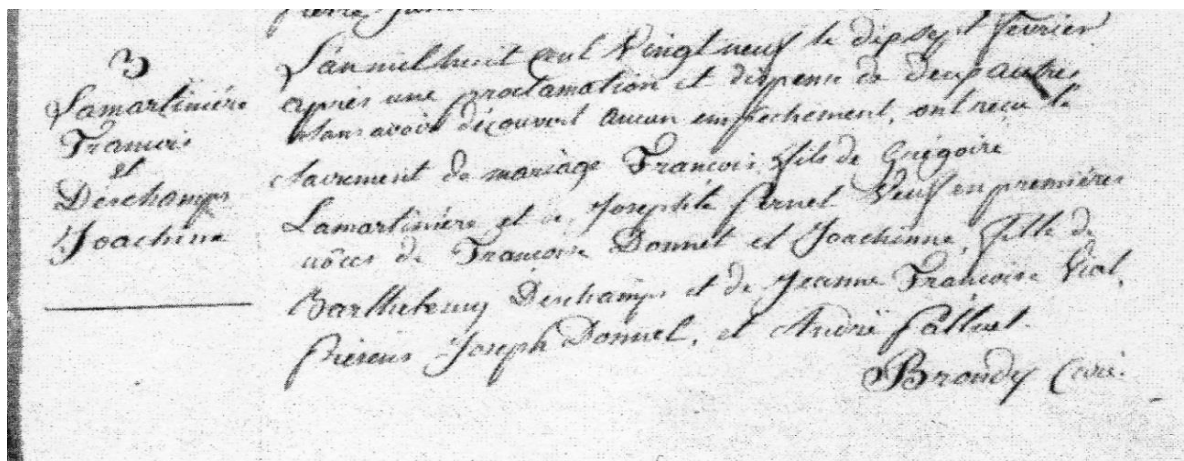 3
Lamartinière
François
et
Deschamps
Joachine
L'an mil huit cent Vingt neuf le dix sept fevrier
après une proclamation et dispense de deux autres
sans avoir découvert aucun empechement, ont reçu le
sacrement de mariage François, fils de Grégoire
Lamartinière et de Josephte Pernet Veuf en premières
nôces de Françoise Donnet et Joachinne, fille de
Barthelemy Deschamps et de Jeanne Françoise Vial,
Présens Joseph Donnet, et André
Curé.